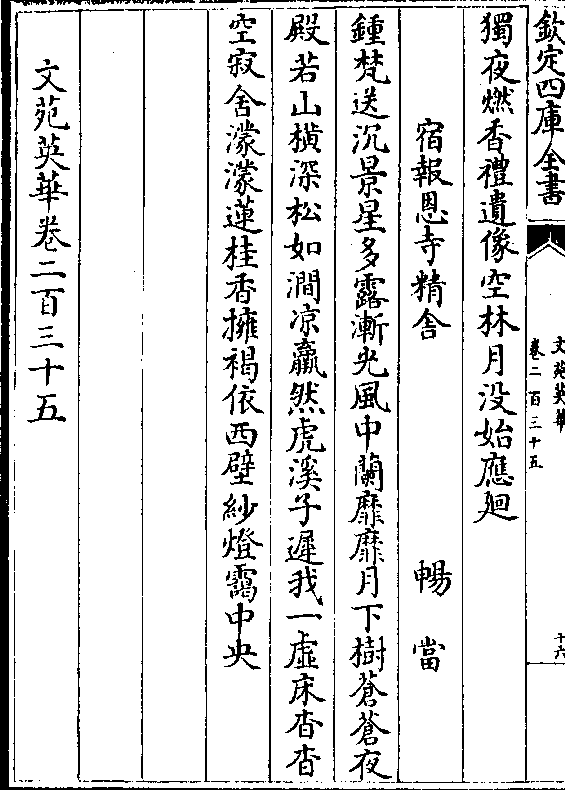 欽定四庫全書
文苑英華
卷二百三十五
十六
獨夜燃香禮遺像空林月没始應廻
宿報恩寺精舎 暢當
鍾梵送沉景星多露漸光風中蘭靡靡月下樹蒼蒼夜
殿若山横深松如澗凉羸然虎溪子遲我一虚床杳杳
空寂舍濛濛蓮桂香擁褐依西壁紗燈靄中央
文苑英華卷二百三十五